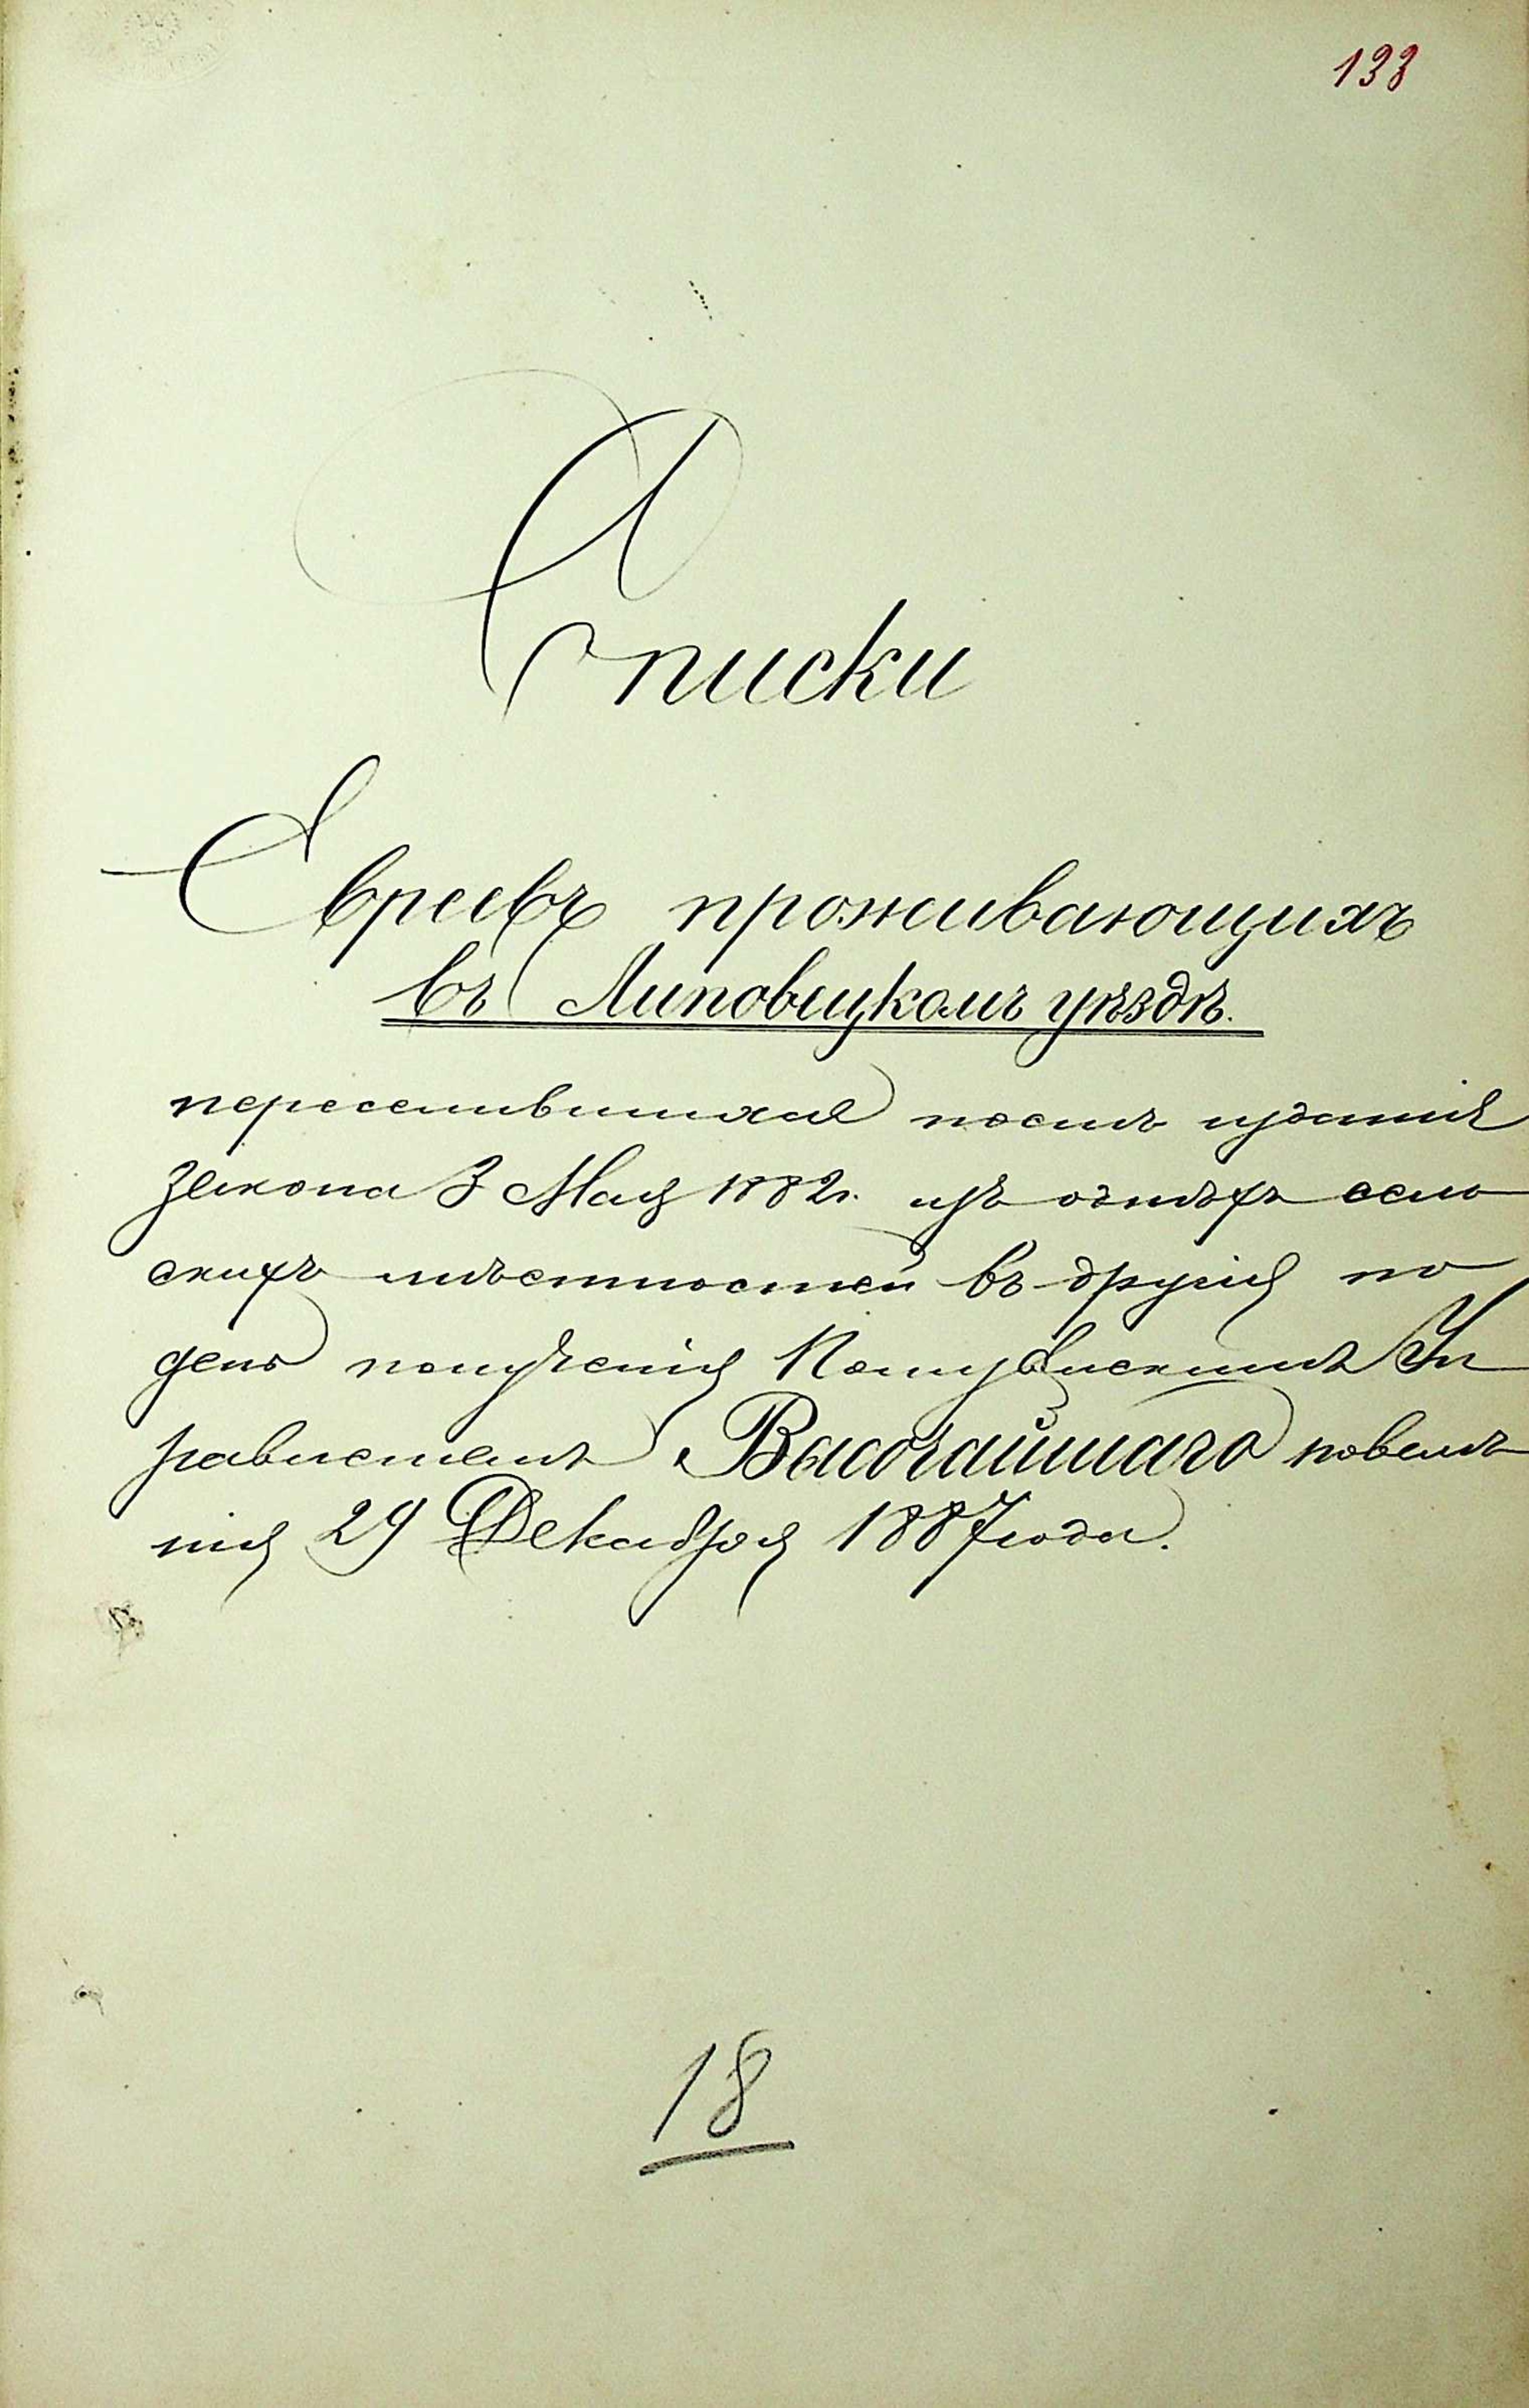 133
Списки
Евреевъ проживающихъ
въ Липовецкомъ уѣздѣ.
переселившихся послѣ изданія
закона 3 Мая 1882 г. изъ однѣхъ сель
скихъ мѣстностей въ другія по
день полученія Полицейскимъ Уп
равленіемъ Высочайшаго повелѣ
нія 29 Декабря 1887 года.
18